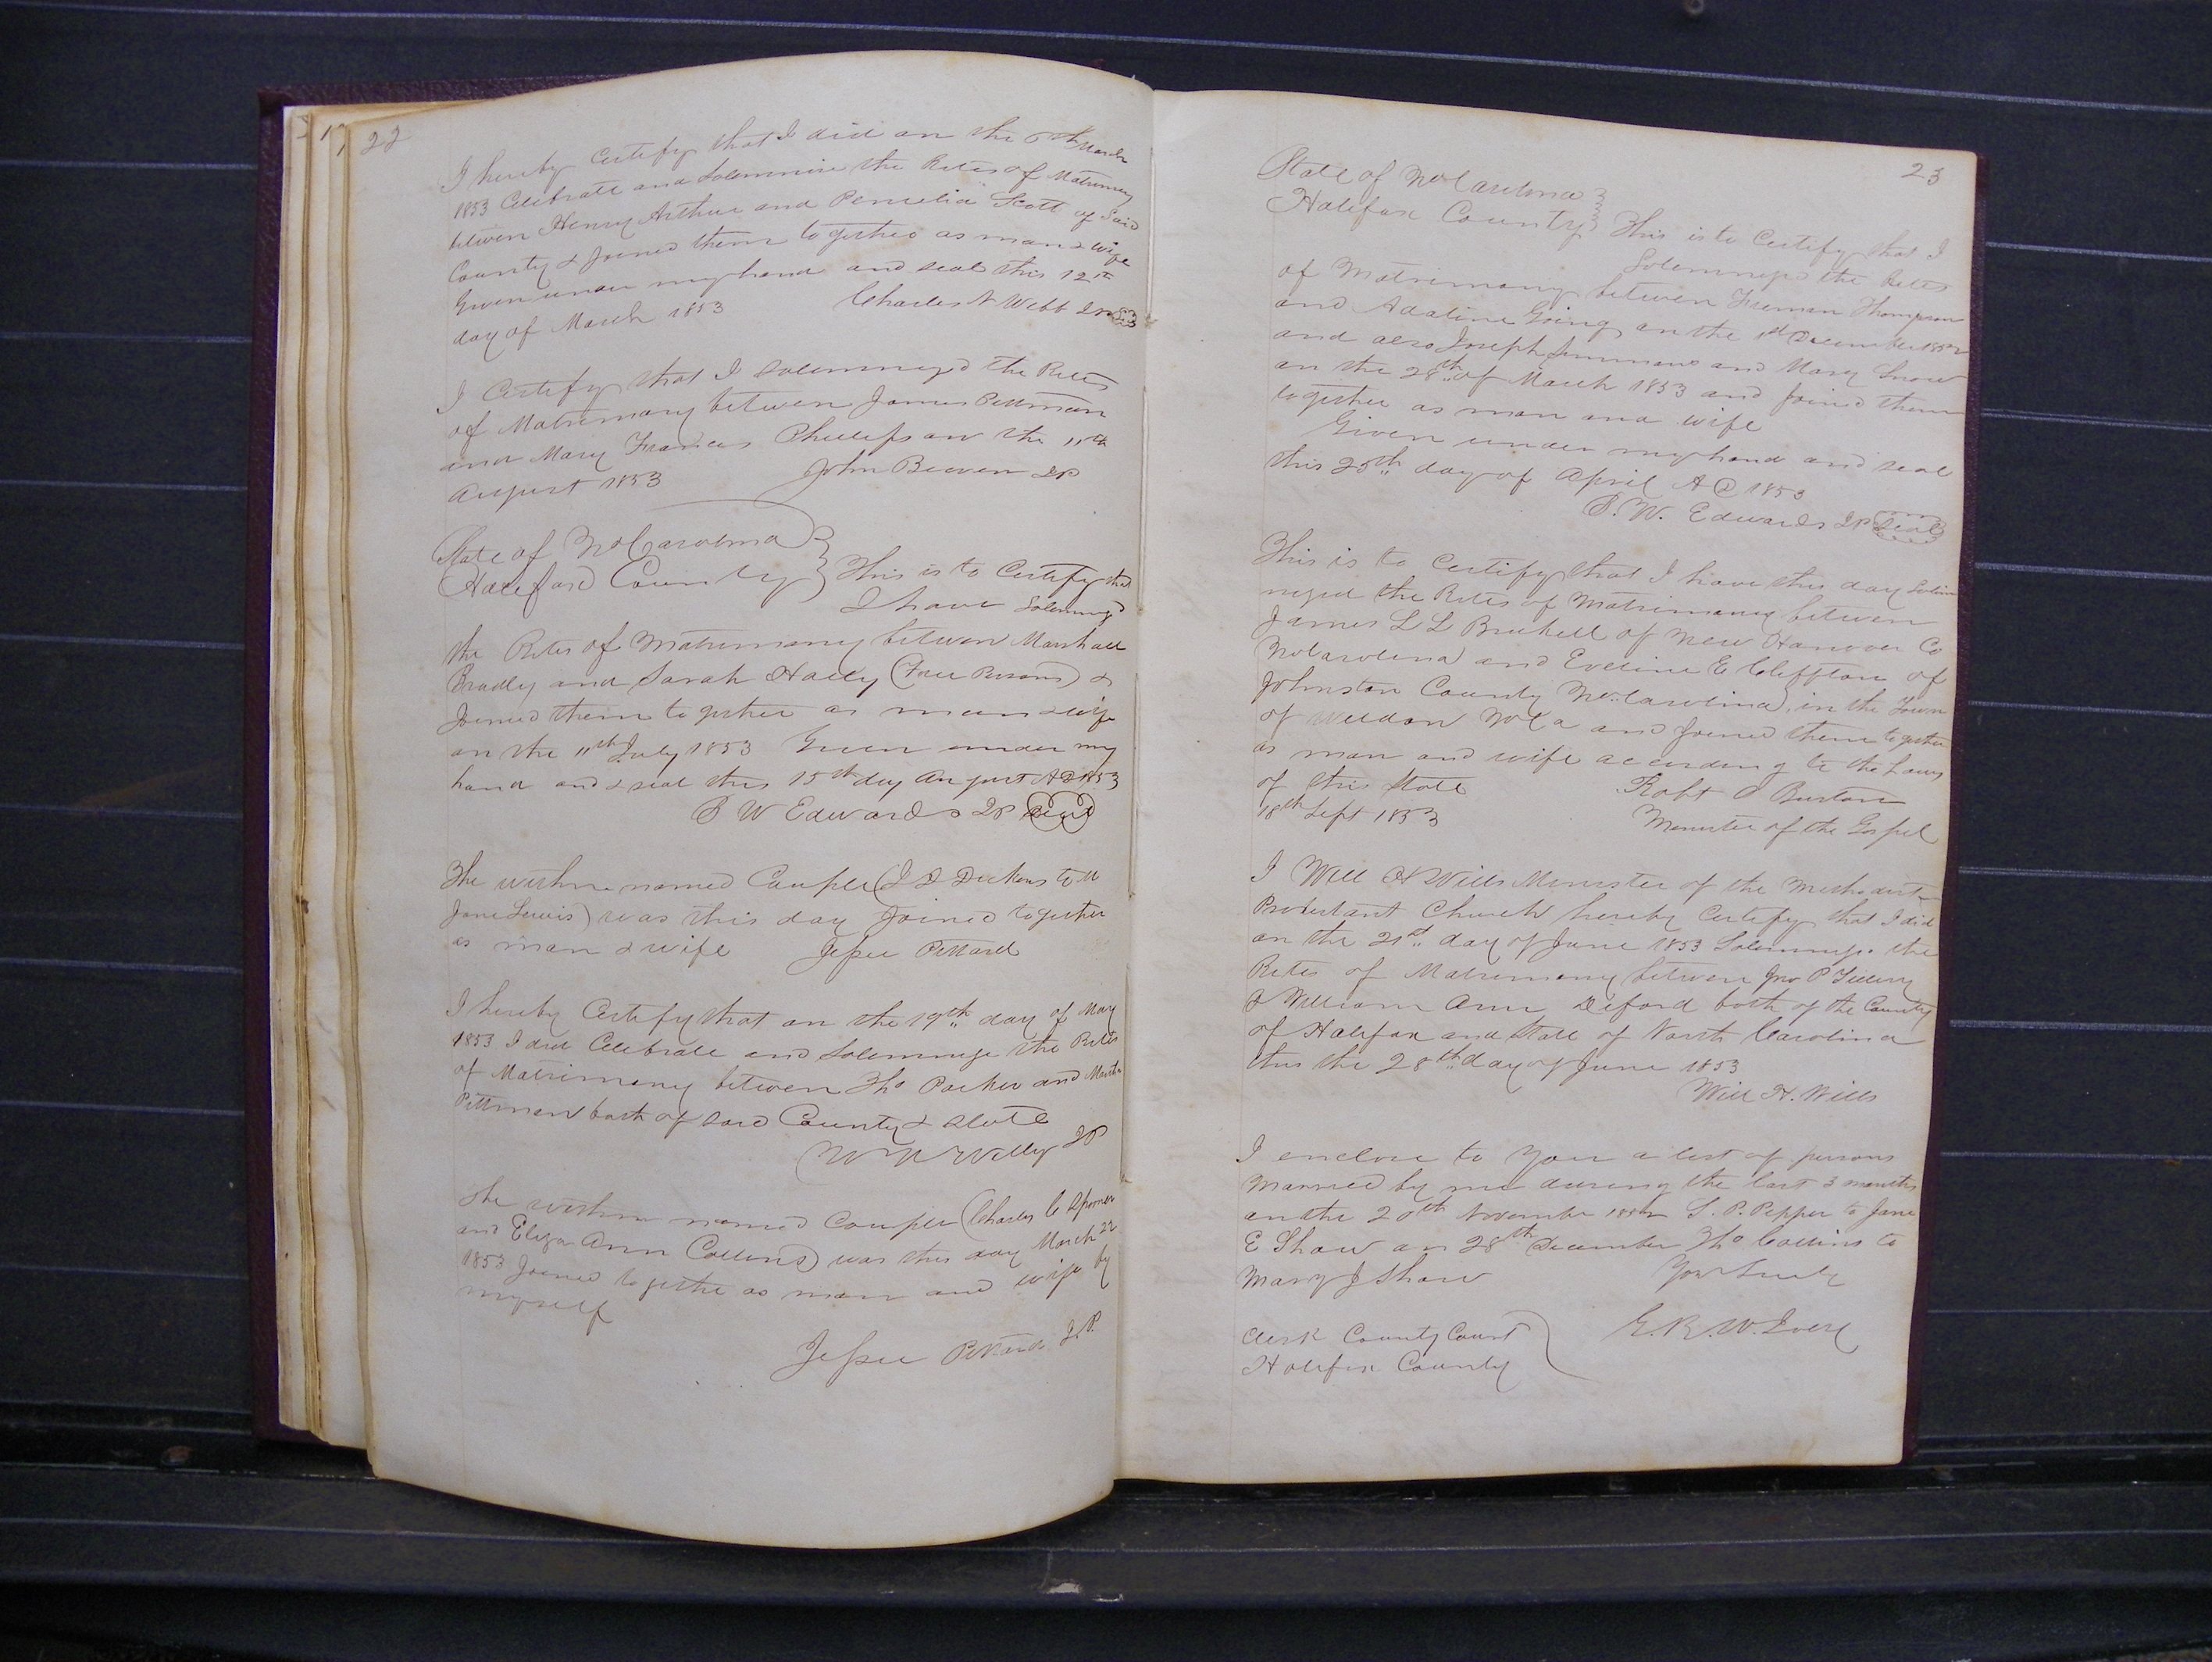 22
I hereby Certify that I did on the 6th March
1853 Celebrate and Solemnise the Rites of Matrimony
between Henry Arthur and Penelia Scott of Said
County & Joined them together as man & wife
Given under my hand and seal this 12th
day of March 1853 Charles N Webb JP
I Certify that I Solemnized the Rites
of Matrimony between James Pittman
and Mary Frances Phillips on the 11th
August 1853 John Beaven JP
State of No Carolina
Halifax County This is to Certify that
I have Solemnized
the Rites of Matrimony between Marshall
Bradly and Sarah Haily (Free Persons) &
Joined them together as man & wife
on the 11th July 1853 Given under my
hand and seal this 15th day August AD 1853
S W Edwards JP Seal
The within named Couple (J D Dickens to M
Jane Lewis) was this day Joined together
as man & wife Jesse Pittard
I hereby Certify that on the 19th day of May
1853 I did Celebrate and Solemnize the Rites
of Matrimony between Tho Parker and Martha
Pittman both of said County & State
W W Willy JP
The within named Couple (Charles C
and Eliza Ann Collins) was this day March 22
1853 Joined together as man and wife by
myself
Jesse Pittard J.P.
23
State of No Carolina
Halifax County This is to Certify that I
Solemnized the Rites
of Matrimony between Freeman Thompson
and Adaline Going on the 1st December 1852
and also Joseph Simmons and Mary Snow
on the 28th of March 1853 and Joined them
together as man and wife
Given under my hand and seal
this 20th day of April A D 1853
S. W. Edwards JP Seal
This is to Certify that I have this day Solem
nized the Rites of Matrimony between
James L L Brickell of New Hanover Co
No Carolina and Eveline E Cliffton of
Johnston County No. Carolina, in the Town
of Weldon No Ca and Joined them together
as man and wife according to the Laws
of this State Robt O Burton
18th Sept 1853 Minister of the Gospel
I Will H Wills Minister of the Methodist
Protestant Church hereby Certify that I did
on the 21st day of June 1853 Solemnize the
Rites of Matrimony between Jno P Tillery
& William Ann Deford both of the County
of Halifax and State of North Carolina
this the 28th day of June 1853
Will H. Wills
I enclose to you a list of persons
Married by me during the last 3 months
on the 20th November 1852 S. P. Pepper to Jane
E Shaw on 28th December Tho Collins to
Mary J Shaw Yours truly
Clerk County Court E. B. W.
Halifax County